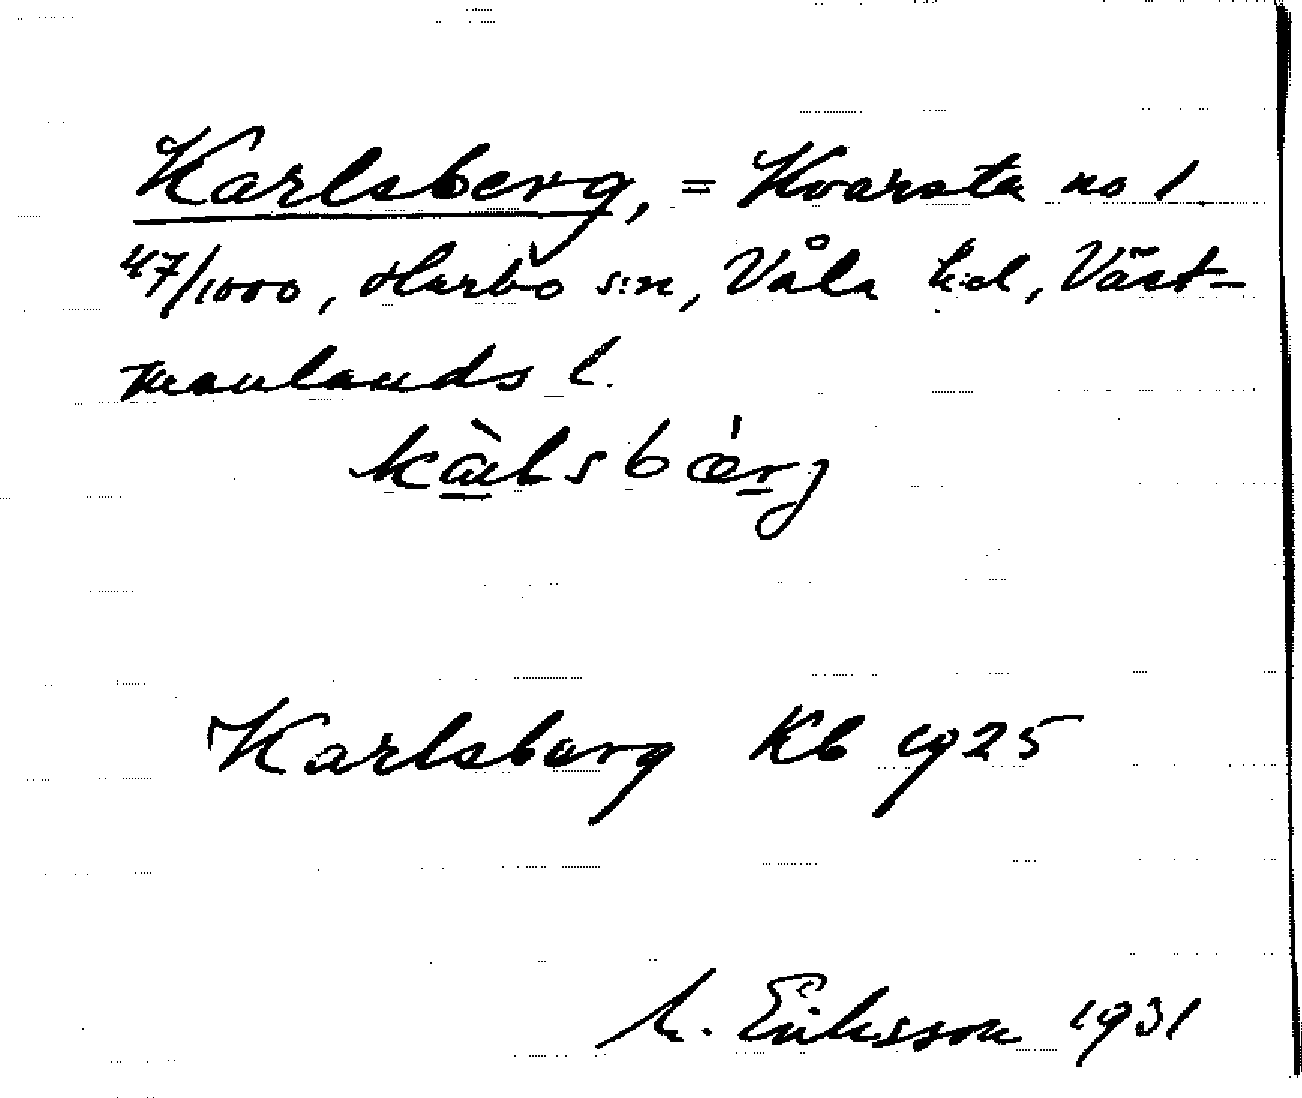 Karlsberg, = Kvarsta no 1
47/1000, Harbo s:n, Våla h:d, Väst-
manlands l.
kàlsbǽrg
Karlsberg Kb 1925
M. Eriksson 1931